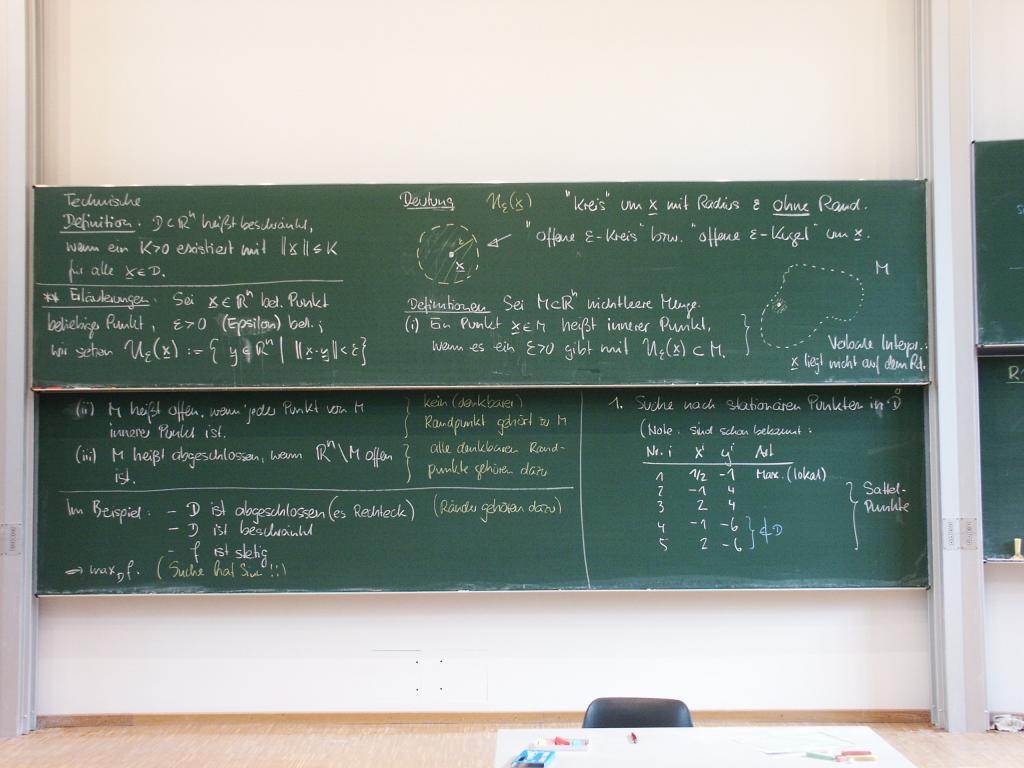 Technische
Definition. D⊂ℝⁿ heißt beschränkt,
wenn ein K>0 existiert mit ‖x‖≤K
für alle x∈D.
** Erläuterungen. Sei x∈ℝⁿ bel. Punkt
beliebiger Punkt, ε>0 (Epsilon) bel.;
wir setzen U_ε(x) := { y∈ℝⁿ | ‖x-y‖<ε}
Deutung U_ε(x) "Kreis" um x mit Radius ε ohne Rand.
"offene ε-Kreis" bzw. "offene ε-Kugel" um x.
ε
x
Definitionen Sei M⊂ℝⁿ nichtleere Menge.
(i) Ein Punkt x∈M heißt innerer Punkt,
wenn es ein ε>0 gibt mit U_ε(x)⊂M.
M
Verbale Interpr.:
x liegt nicht auf dem Rd.
(ii) M heißt offen, wenn jeder Punkt von M
innerer Punkt ist.
kein (denkbarer)
Randpunkt gehört zu M
(iii) M heißt abgeschlossen, wenn ℝⁿ\M offen
ist.
alle denkbaren Rand-
punkte gehören dazu
Im Beispiel: - D ist abgeschlossen (es Rechteck) (Ränder gehören dazu)
- D ist beschränkt
- f ist stetig
⇒ max_D f. (Suche hat Sinn!!)
1. Suche nach stationären Punkten in D̊
(Note. sind schon bekannt:
Nr. i xⁱ yⁱ Art
1 1/2 -1 Max. (lokal)
2 -1 4
3 2 4
4 -1 -6
5 2 -6
∉D
Sattel-
Punkte